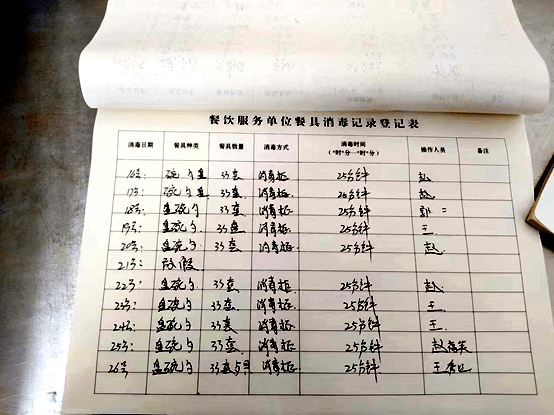 餐饮服务单位餐具消毒记录登记表
消毒日期 餐具种类 餐具数量 消毒方式 消毒时间（*时*分—*时*分） 操作人员 备注
16号: 碗勺盘 33套 消毒柜 25分钟 赵
17号: 碗勺盘 33套 消毒柜 25分钟 赵
18号: 盘碗勺 33套 消毒柜 25分钟 郭
19号: 盘碗勺 33套 消毒柜 25分钟 王
20号: 盘碗勺 33套 消毒柜 25分钟 赵
21号: 放假
22号: 盘碗勺 33套 消毒柜 25分钟 赵
23号: 盘碗勺 33套 消毒柜 25分钟 王
24号: 盘碗勺 33套 消毒柜 25分钟 王
25号: 盘碗勺 33套 消毒柜 25分钟 赵
26号 盘碗勺 33套 消毒柜 25分钟 王